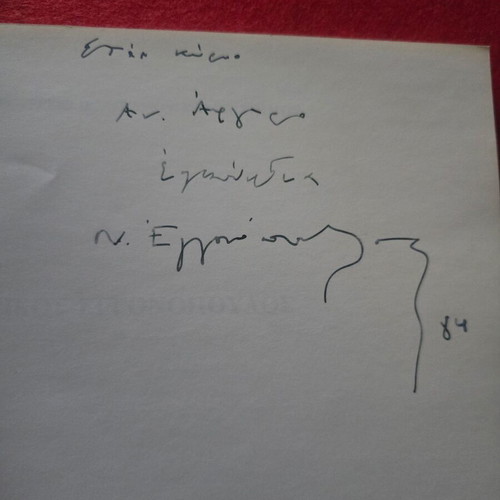 Στὸν κύριο
Αν.
ἐγκάρδια
Ν. Ἐγγονόπουλος
84